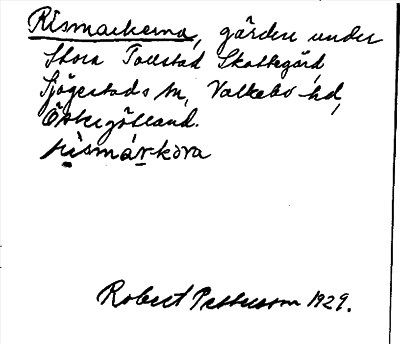 Rismarkerna, gärden under
Stora Tollstad Skattegård,
Sjögestads sn, Valkebo hd,
Östergötland.
rismárkơra
Robert Pettersson 1929.